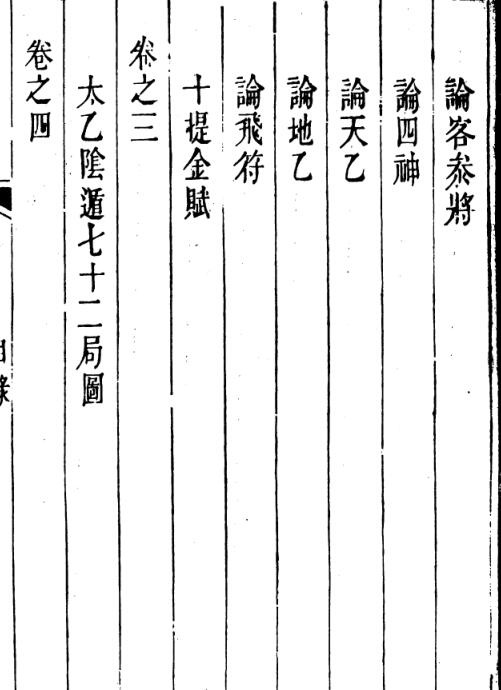 論客叅將
論四神
論天乙
論地乙
論飛符
十提金賦
卷之三
太乙陰遁七十二局圖
卷之四
目錄